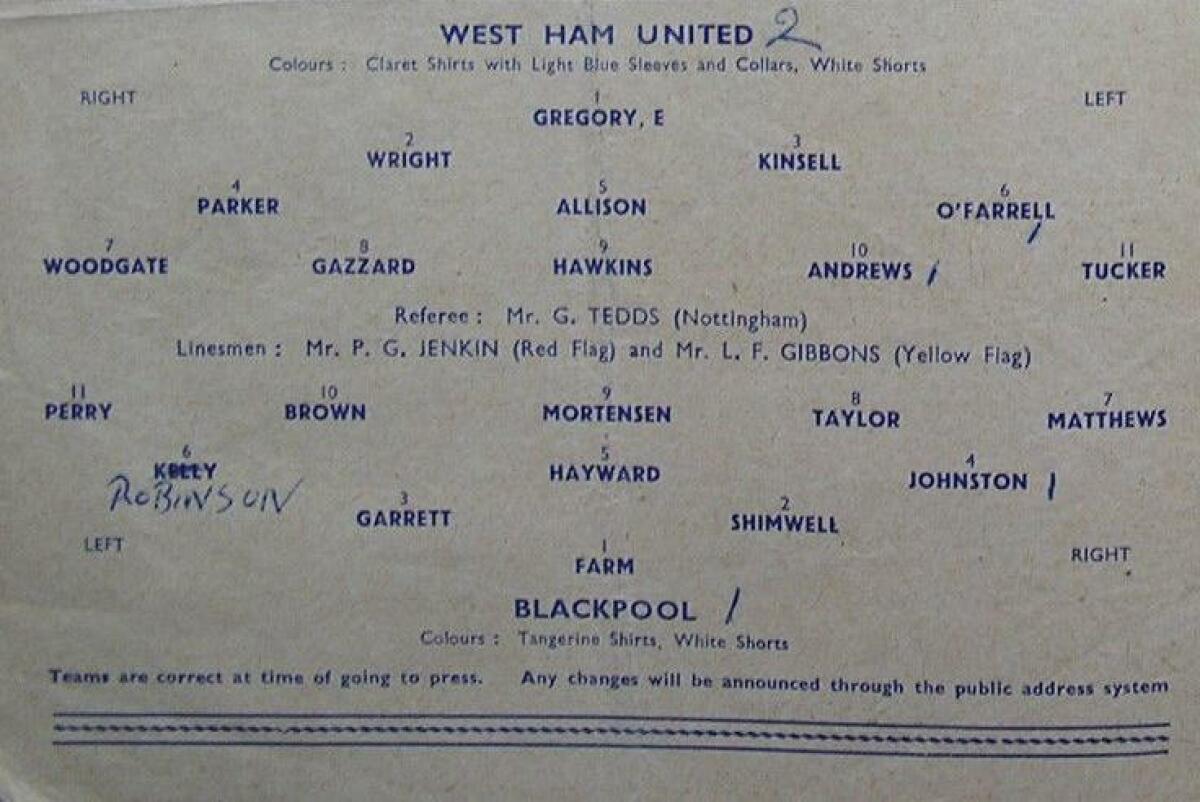 WEST HAM UNITED 2
Colours : Claret Shirts with Light Blue Sleeves and Collars, White Shorts
RIGHT LEFT
1
GREGORY, E
2 3
WRIGHT KINSELL
4 5 6
PARKER ALLISON O'FARRELL /
7 8 9 10 11
WOODGATE GAZZARD HAWKINS ANDREWS / TUCKER
Referee : Mr. G. TEDDS (Nottingham)
Linesmen : Mr. P. G. JENKIN (Red Flag) and Mr. L. F. GIBBONS (Yellow Flag)
11 10 9 8 7
PERRY BROWN MORTENSEN TAYLOR MATTHEWS
6 5 4
KELLY HAYWARD JOHNSTON /
ROBINSON
3 2
GARRETT SHIMWELL
LEFT RIGHT
1
FARM
BLACKPOOL /
Colours : Tangerine Shirts, White Shorts
Teams are correct at time of going to press. Any changes will be announced through the public address system